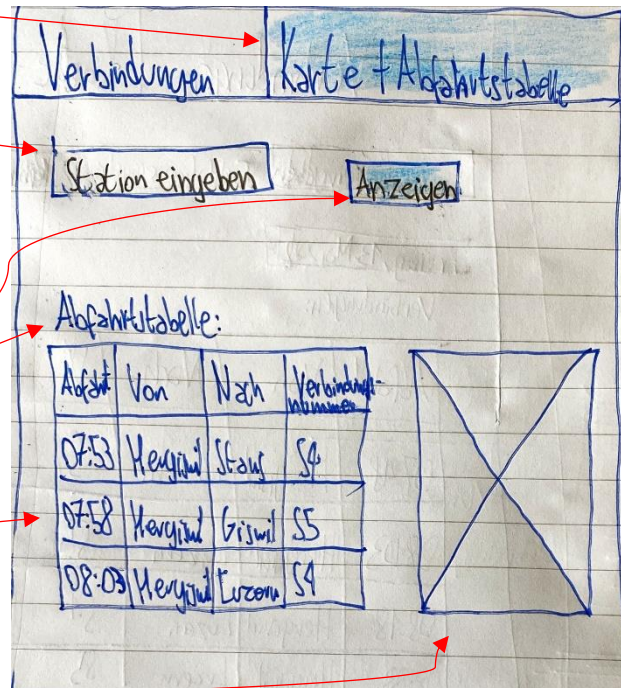 Verbindungen
Karte + Abfahrtstabelle
Station eingeben
Anzeigen
Abfahrtstabelle:
Abfahrt Von Nach Verbindungs-
nummer
07:53 Hergiswil Stans S4
07:58 Hergiswil Giswil S5
08:03 Hergiswil Luzern S4